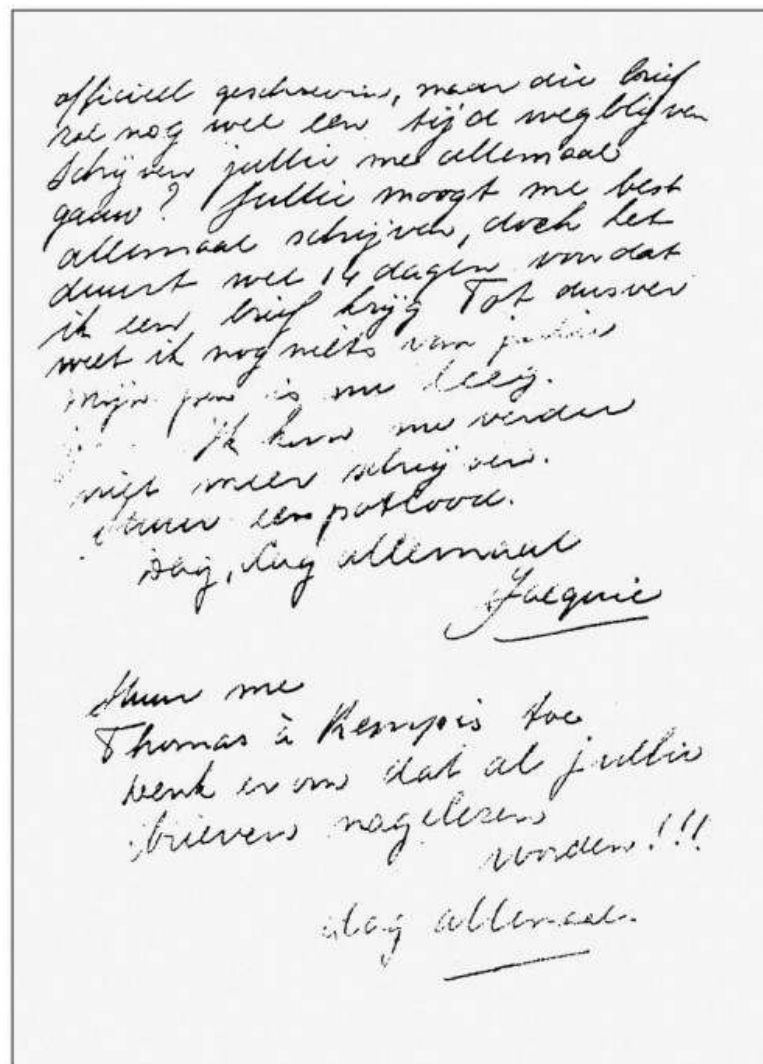 officieel geschreven, maar die brief
zal nog wel een tijdje wegblijven
Schrijven jullie me allemaal
gauw? Jullie moogt me best
allemaal schrijven, doch het
duurt wel 14 dagen voordat
ik een brief krijg Tot dusver
weet ik nog niets van jullie
Mijn pen is nu leeg.
Ik kan nu verder
niet meer schrijven.
Stuur een potlood.
Dag, dag allemaal
Jacquie
Stuur me
Thomas à Kempis toe
Denk er om dat al jullie
brieven nagelezen
worden!!!
dag allemaal.